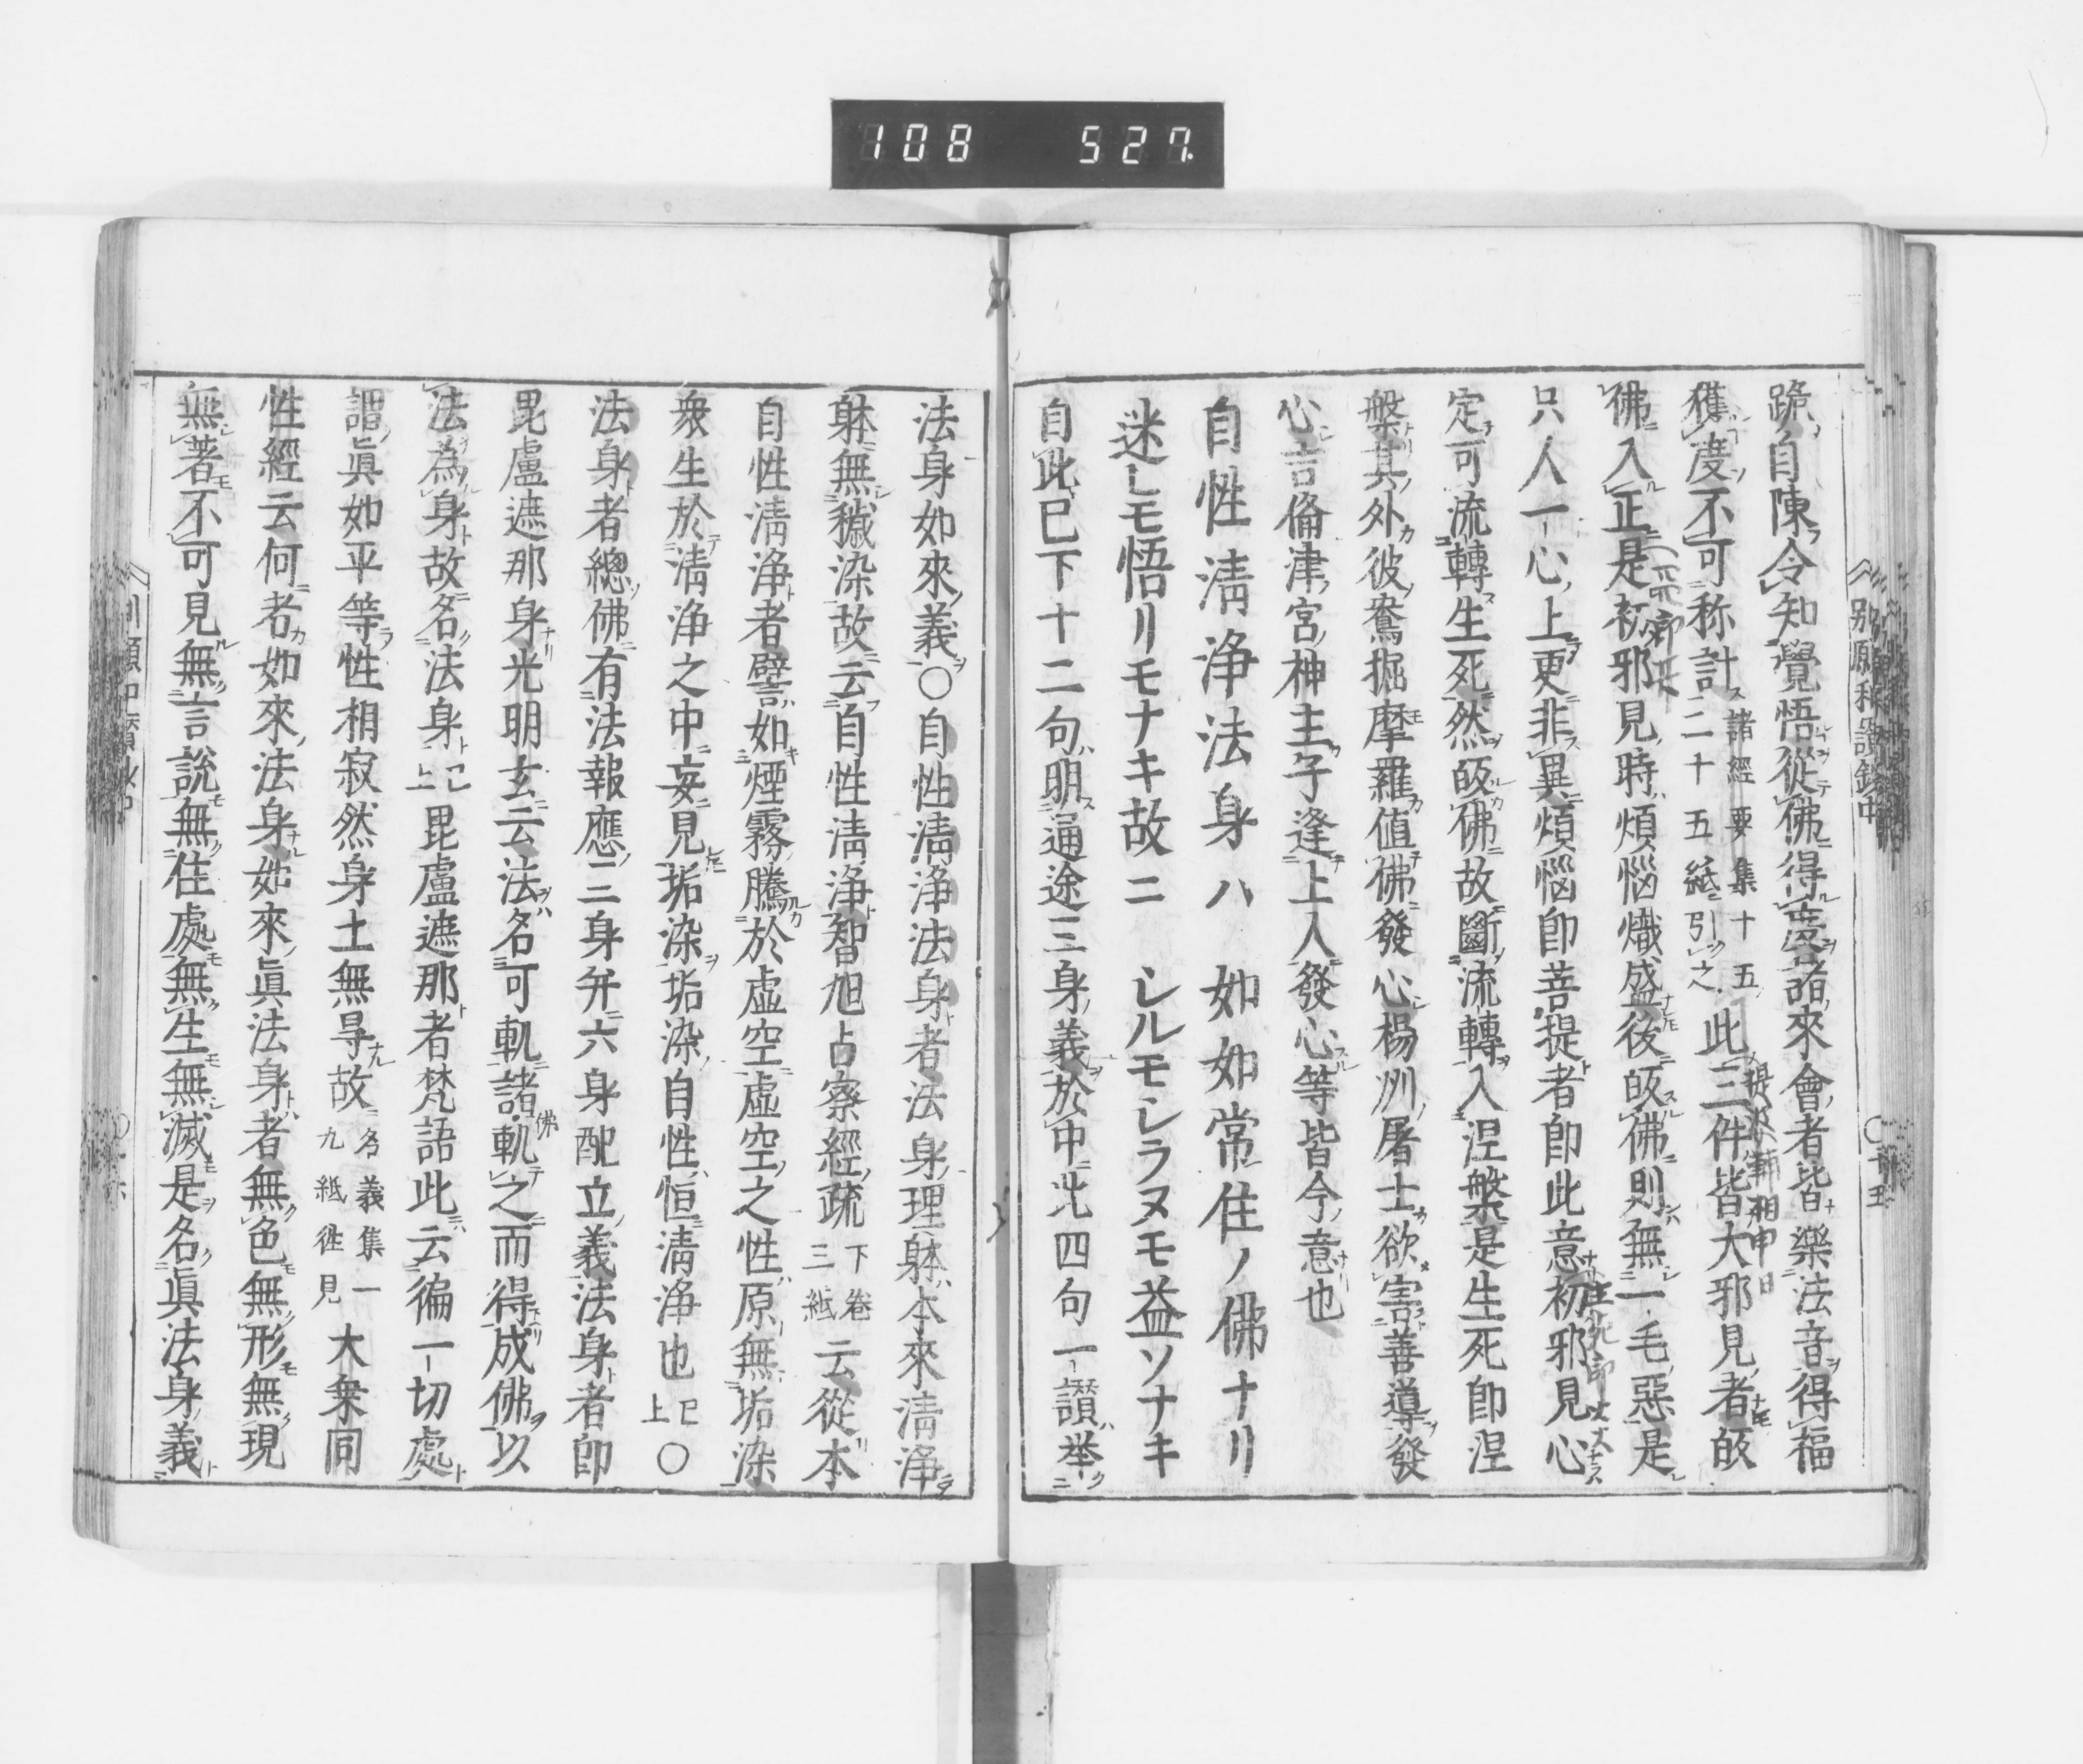 108 527.
跪自陳令知覺悟從佛得度諸來會者皆樂法音得福
獲度不可称計 諸經要集十五 二十五紙引之 此三件皆大邪見者皈
佛入正是初邪見時煩惱熾盛後皈佛則無一毛惡是
只人一心上更非異煩惱即菩提者即此意初邪見心
定可流轉生死然皈佛故斷流轉入涅槃是生死即涅
槃其外彼鴦掘摩羅值佛發心楊洲屠士欲害善導發
心言倫津宮神主子逢上人發心等皆今意也
自性淸浄法身ハ 如如常住ノ佛ナリ
迷ヒモ悟リモナキ故ニ シルモシラヌモ益ソナキ
自此已下十二句明通途三身義於中此四句一讃挙
別願和讃鈔中 十五
法身如來義〇自性淸浄法身者法身理躰本來淸浄
躰無穢染故云自性淸浄智旭占察經疏 下卷三紙 云從本
自性淸浄者譬如煙霧騰於虛空虛空之性原無垢染
衆生於淸浄之中妄見垢染垢染自性恒淸浄也 已上 〇
法身者總佛有法報應三身并六身配立義法身者即
毘盧遮那身光明玄云法名可軌諸佛軌之而得成佛以
法為身故名法身 已上 毘盧遮那者梵語此云徧一切處
謂眞如平等性相寂然身土無㝵故 名義集一 九紙徃見 大衆同
性經云何者如來法身如來眞法身者無色無形無現
無著不可見無言説無住處無生無滅是名眞法身義